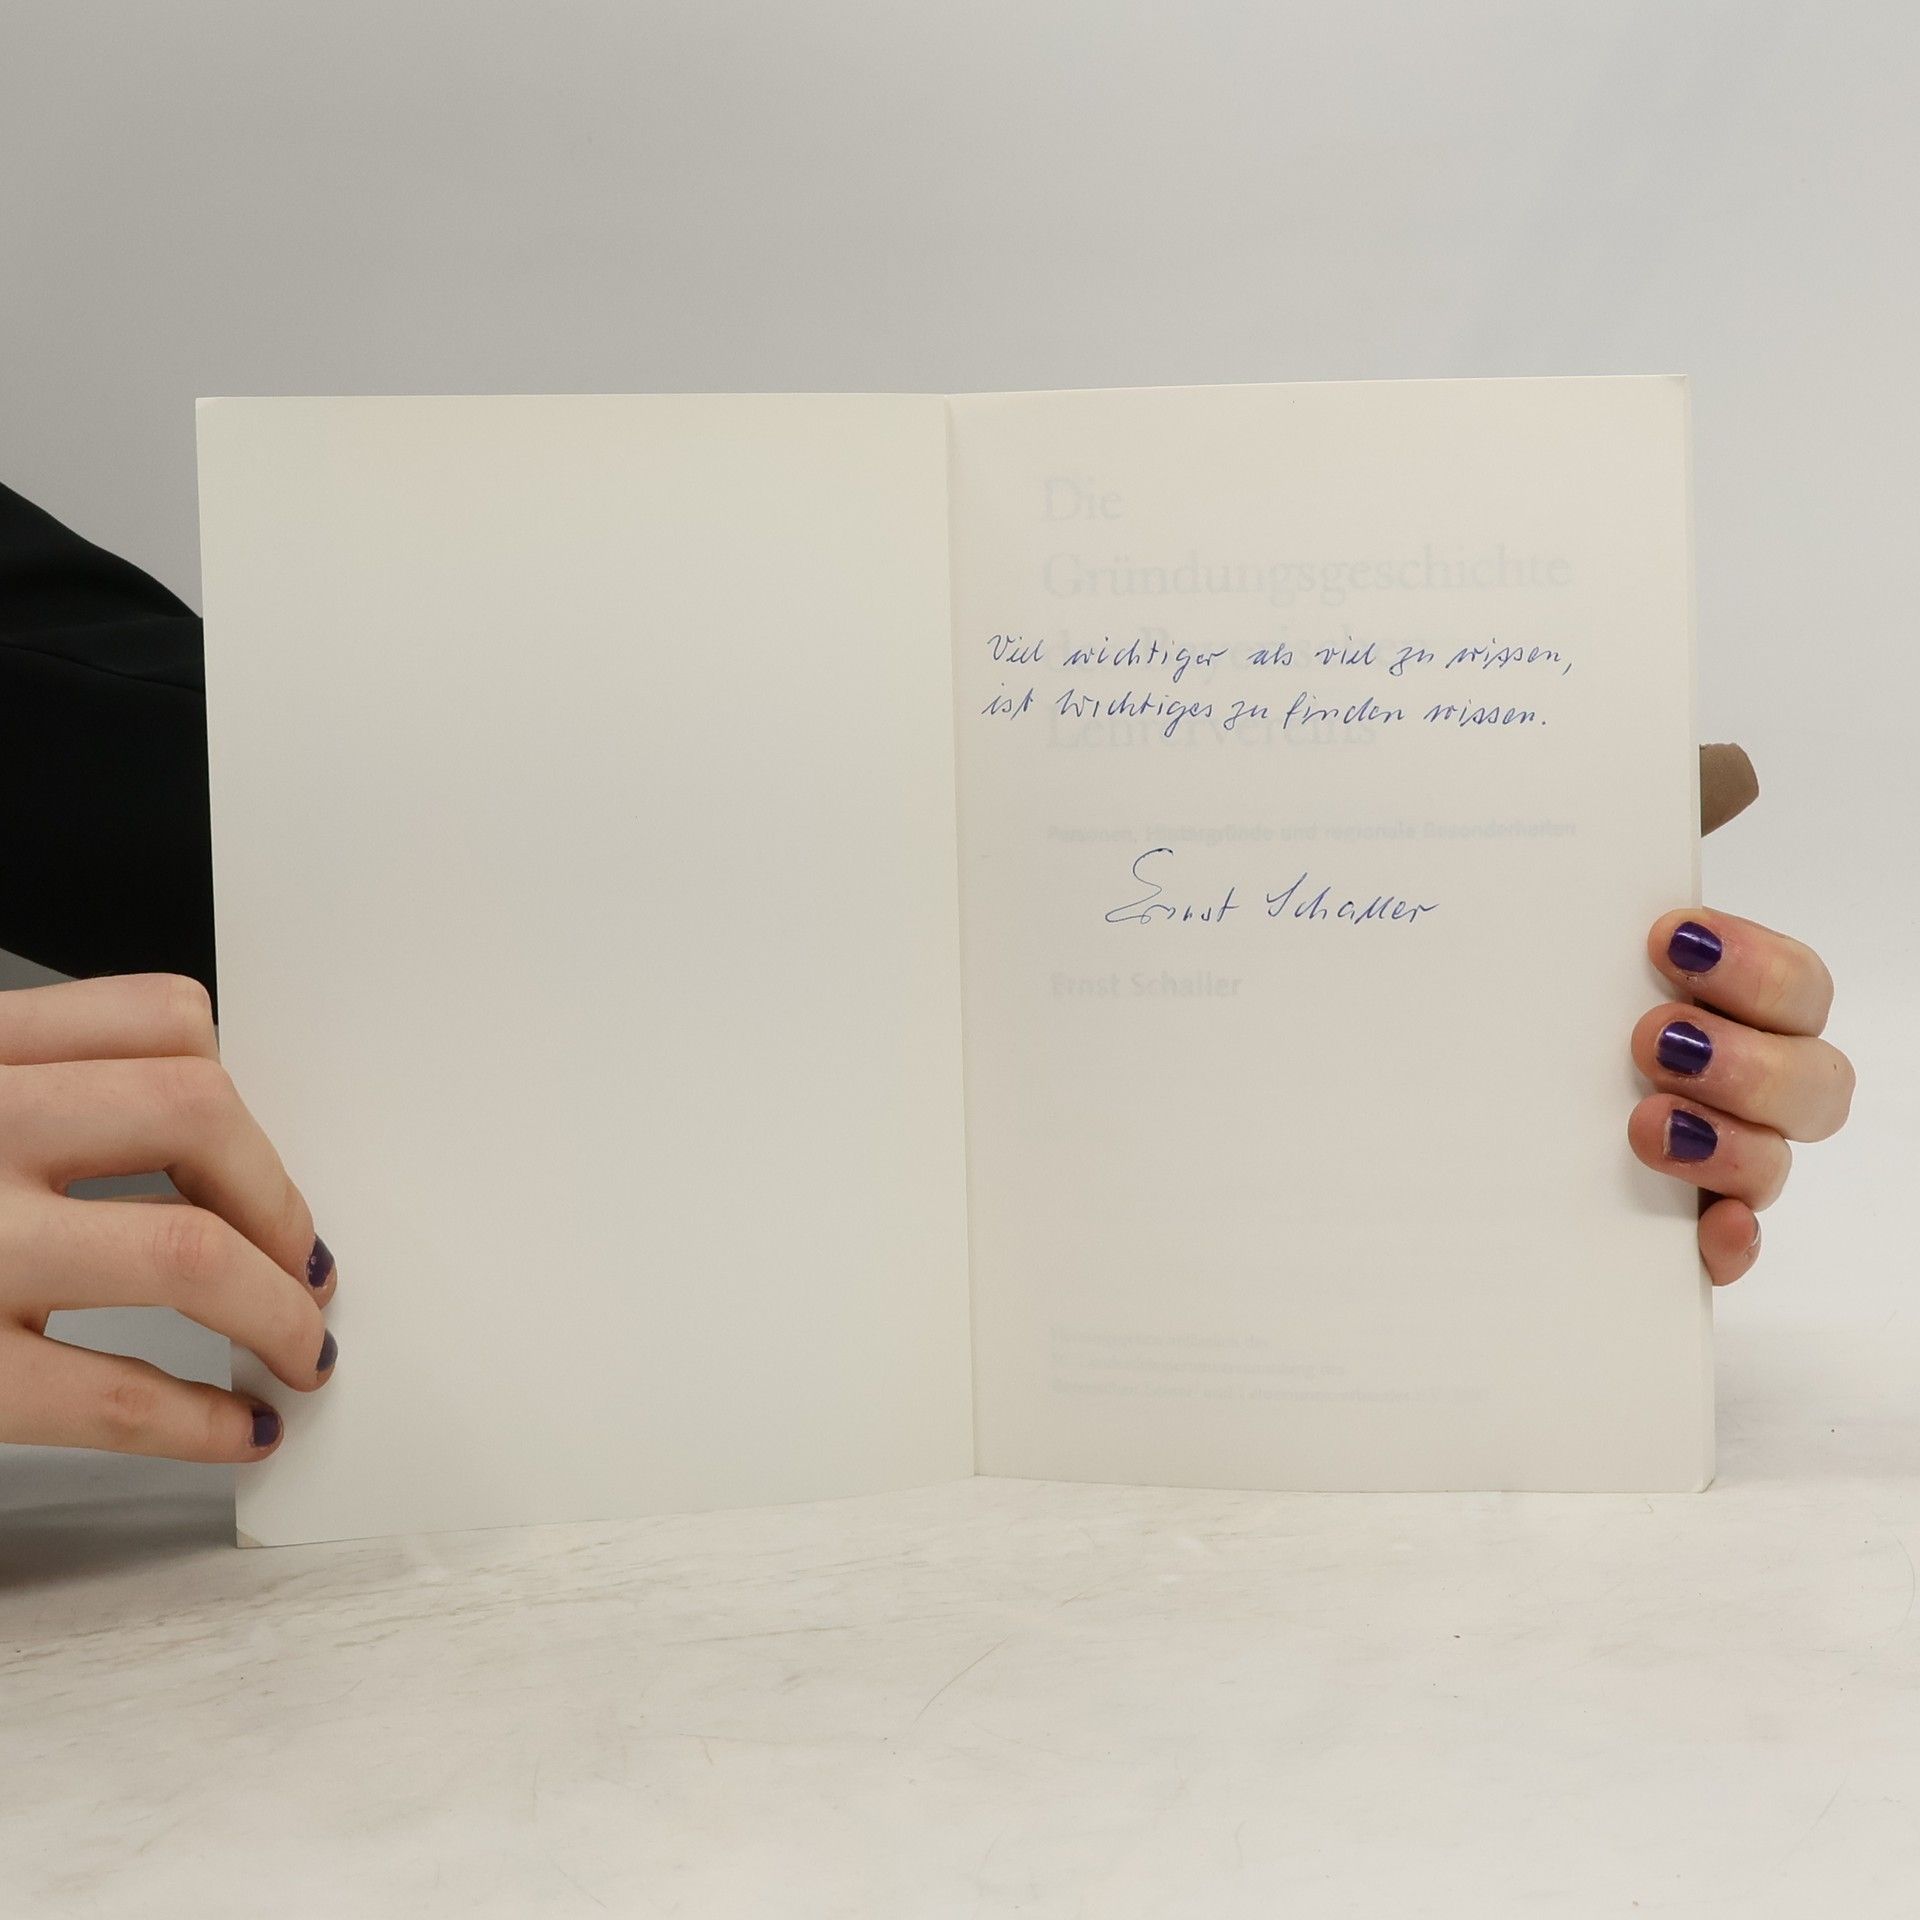 Die
Gründungsgeschichte
des Bayerischen
Viel wichtiger als viel zu wissen,
ist Wichtiges zu finden wissen.
Lehrervereins
Personen, Hintergründe und regionale Besonderheiten
Ernst Schaller
Ernst Schaller